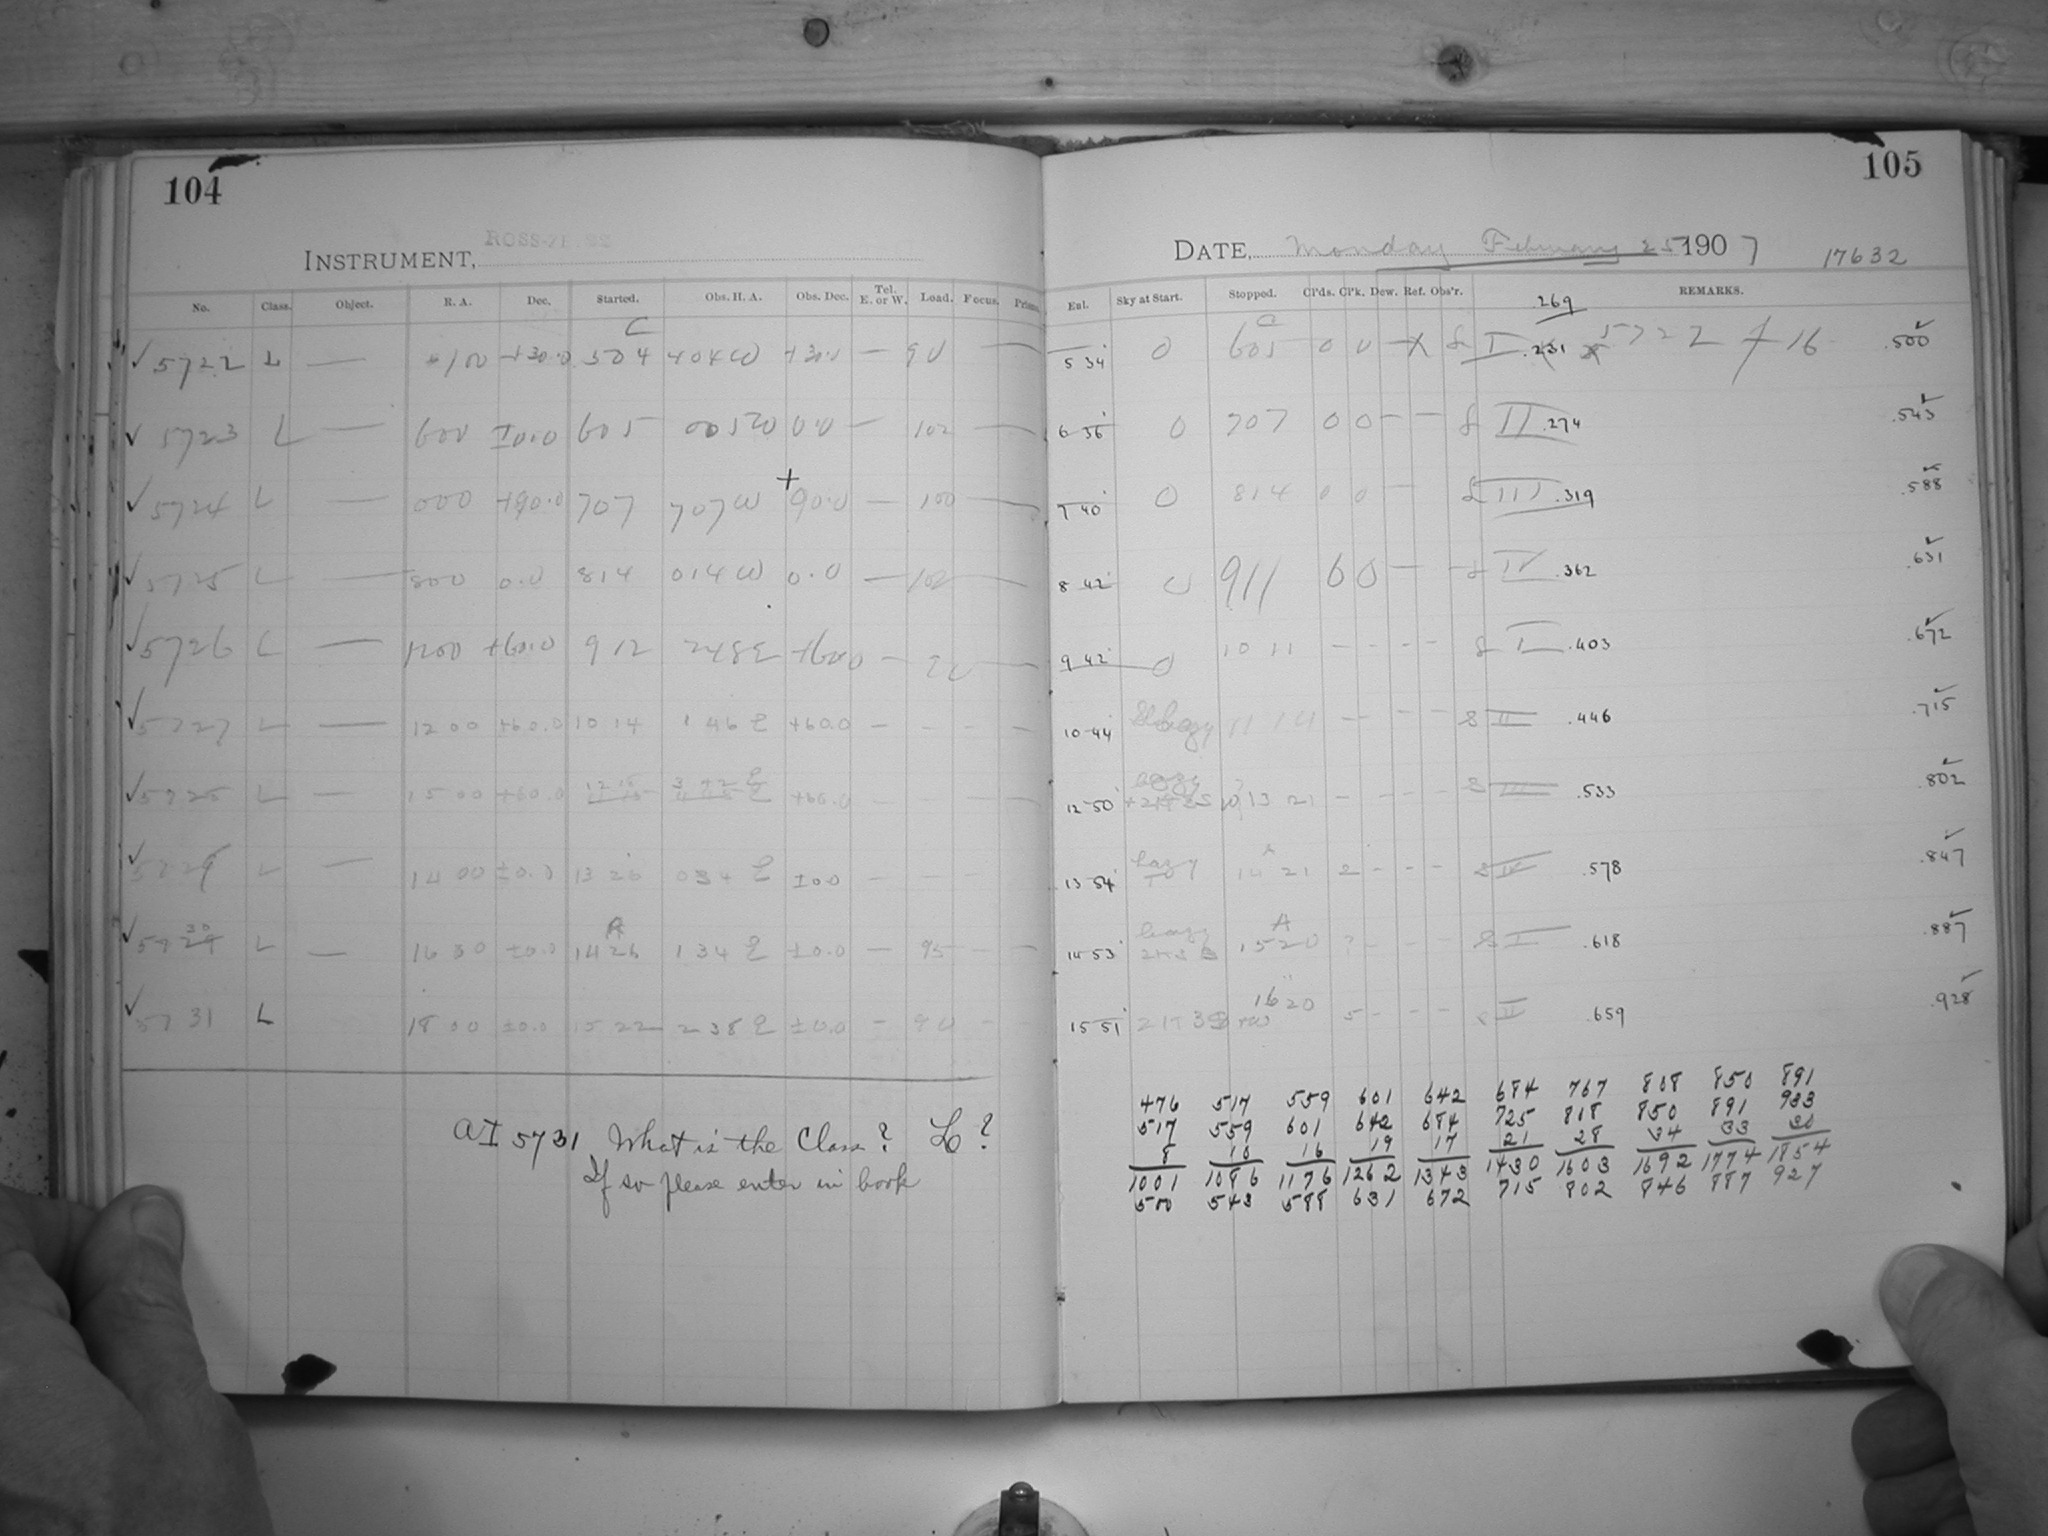 104
INSTRUMENT,
No. Class. Object. R. A. Dec. Started. Obs. H. A. Obs. Dec. Tel. E. or W. Load. Focus. Prism.
C
✓ 5722 L — 100 +30.0 504 404W +30.0 — 90 —
✓ 5723 L — 600 ±0.0 605 005W 0.0 — 102 —
✓ 5724 L — 000 +90.0 707 707W +90.0 — 100 —
✓ 5725 L — 800 0.0 814 014W 0.0 — 102 —
✓ 5726 L — 1200 +60.0 912 248E +60.0 — —
✓ 5727 L — 12 00 +60.0 10 14 1 46 E +60.0 — - - -
L — 15 00 +60.0 +60.0 - - - -
L — 14 00 ±0.0 13 26 034 E ±00 - - - -
✓ 5729 30 L — 16 30 ±0.0 14 26 1 34 E ±0.0 — 95 - -
✓ 5731 L 18 00 ±0.0 15 22 2 38 E ±0.0 - 90 -
AI 5731 What is the Class? L?
If so please enter in book
105
DATE, Monday February 25 1907 17632
Eal. Sky at Start. Stopped. Cl'ds. Cl'k. Dew. Ref. Obs'r. REMARKS.
.269
5 34 0 605 0 0 — X S I .231 5722 16 .500
6 36 0 707 0 0 — — S II .274 .543
7 40 0 814 0 0 — S III .319 .588
8 42 0 911 0 0 — — S IV .362 .631
9 42 0 10 11 - - - - S I .403 .672
10 44 11 14 — - - S II .446 .715
12 50 13 21 - - - - S III .533 .802
13 54 hazy 14 21 2 - - - S IV .578 .847
14 53 hazy 15 20 ? - - - S I .618 .887
15 51 16 20 5 - - - S II .659 .928
476 517 559 601 642 684 767 808 850 891
517 559 601 642 684 725 818 850 891 933
8 10 16 19 17 21 28 34 33 30
1001 1086 1176 1262 1343 1430 1603 1692 1774 1854
500 543 588 631 672 715 802 846 887 927